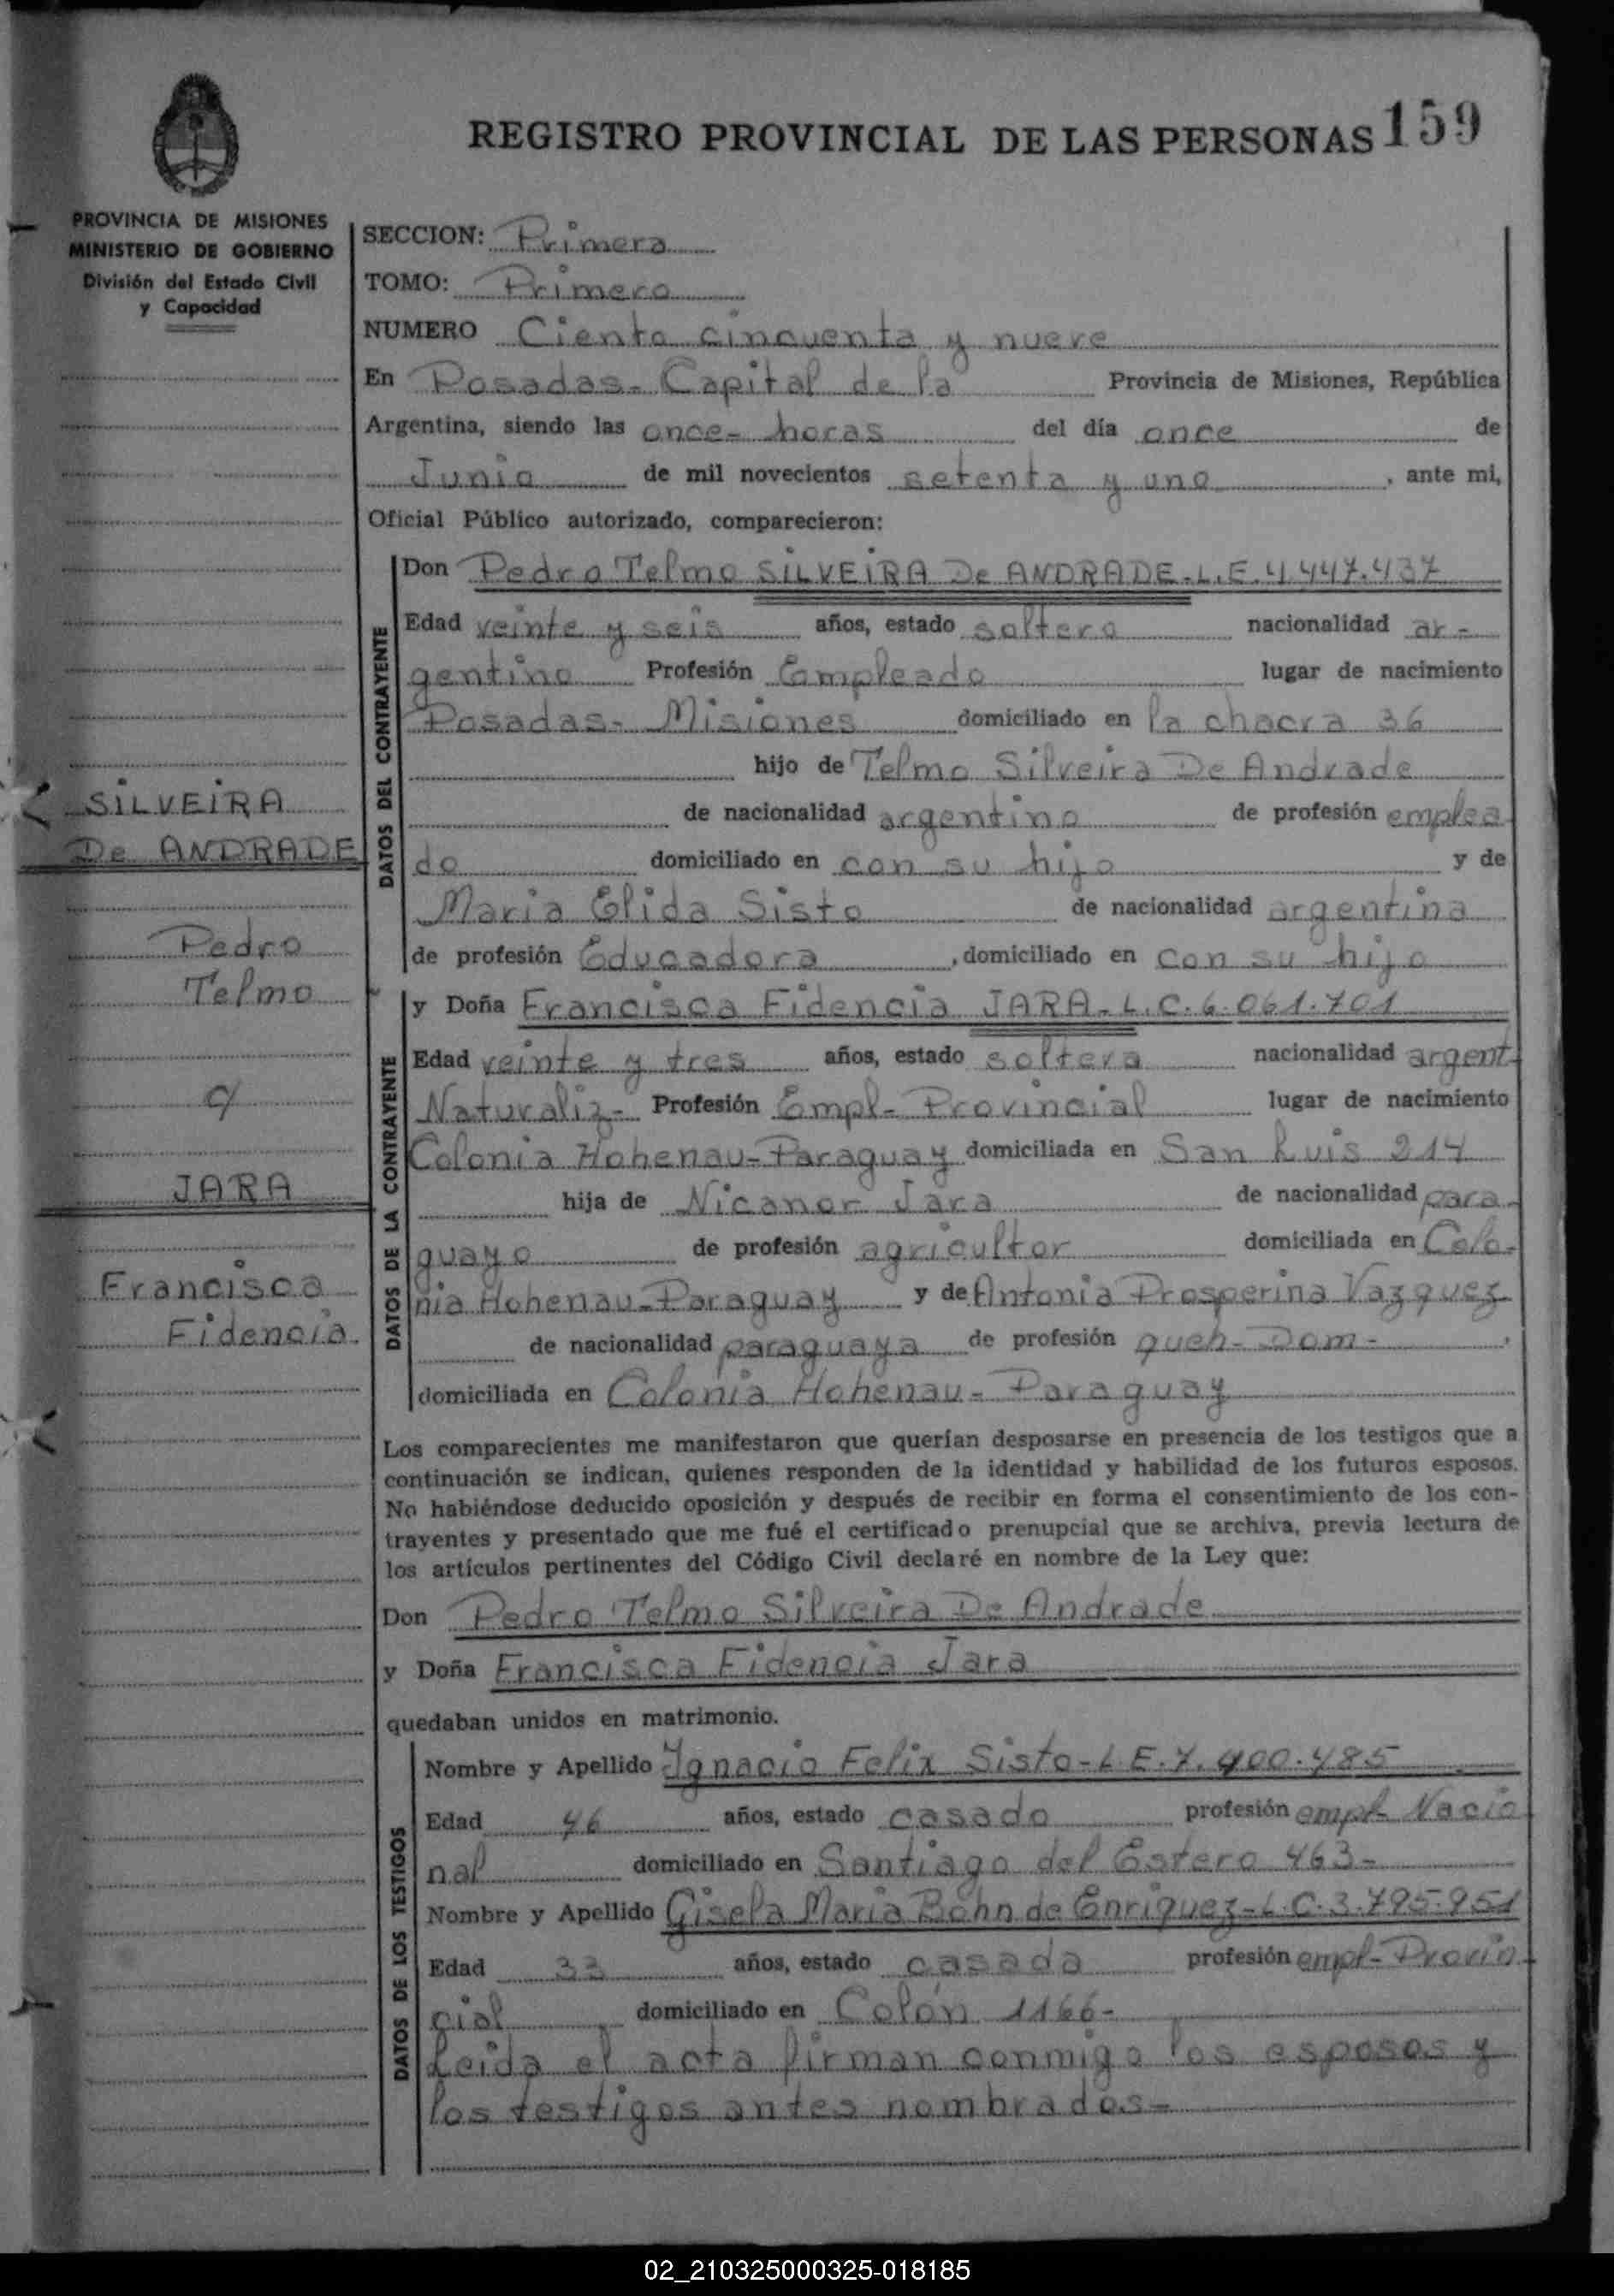 REGISTRO PROVINCIAL DE LAS PERSONAS 159
PROVINCIA DE MISIONES
MINISTERIO DE GOBIERNO
División del Estado Civil
y Capacidad
SILVEIRA
De ANDRADE
Pedro
Telmo
c/
JARA
Francisca
Fidencia
SECCION: Primera
TOMO: Primero
NUMERO Ciento cincuenta y nueve
En Posadas- Capital de la Provincia de Misiones, República
Argentina, siendo las once- horas del día once de
Junio de mil novecientos setenta y uno, ante mi,
Oficial Público autorizado, comparecieron:
DATOS DEL CONTRAYENTE
Don Pedro Telmo SILVEIRA De ANDRADE-L.E.4.447.437
Edad veinte y seis años, estado soltero nacionalidad ar-
gentino Profesión Empleado lugar de nacimiento
Posadas- Misiones domiciliado en la chacra 36
hijo de Telmo Silveira De Andrade
de nacionalidad argentino de profesión emplea
do domiciliado en con su hijo y de
Maria Elida Sisto de nacionalidad argentina
de profesión Educadora, domiciliado en con su hijo
DATOS DE LA CONTRAYENTE
y Doña Francisca Fidencia JARA-L.C.6.061.701
Edad veinte y tres años, estado soltera nacionalidad argent-
Naturaliz- Profesión Empl- Provincial lugar de nacimiento
Colonia Hohenau-Paraguay domiciliada en San Luis 214
hija de Nicanor Jara de nacionalidad para-
guayo de profesión agricultor domiciliada en Colo-
nia Hohenau-Paraguay y de Antonia Prosperina Vazquez
de nacionalidad paraguaya de profesión queh- Dom-,
domiciliada en Colonia Hohenau- Paraguay
Los comparecientes me manifestaron que querían desposarse en presencia de los testigos que a
continuación se indican, quienes responden de la identidad y habilidad de los futuros esposos.
No habiéndose deducido oposición y después de recibir en forma el consentimiento de los con-
trayentes y presentado que me fué el certificado prenupcial que se archiva, previa lectura de
los artículos pertinentes del Código Civil declaré en nombre de la Ley que:
Don Pedro Telmo Silveira De Andrade
y Doña Francisca Fidencia Jara
quedaban unidos en matrimonio.
DATOS DE LOS TESTIGOS
Nombre y Apellido Ignacio Felix Sisto-L.E.7.400.485
Edad 46 años, estado casado profesión empl- Nacio
nal domiciliado en Santiago del Estero 463-
Nombre y Apellido Gisela Maria Bohn de Enriquez-L.C.3.795.951
Edad 33 años, estado casada profesión empl- Provin-
cial domiciliado en Colón 1166-
Leida el acta firman conmigo los esposos y
los testigos antes nombrados-
02_210325000325-018185